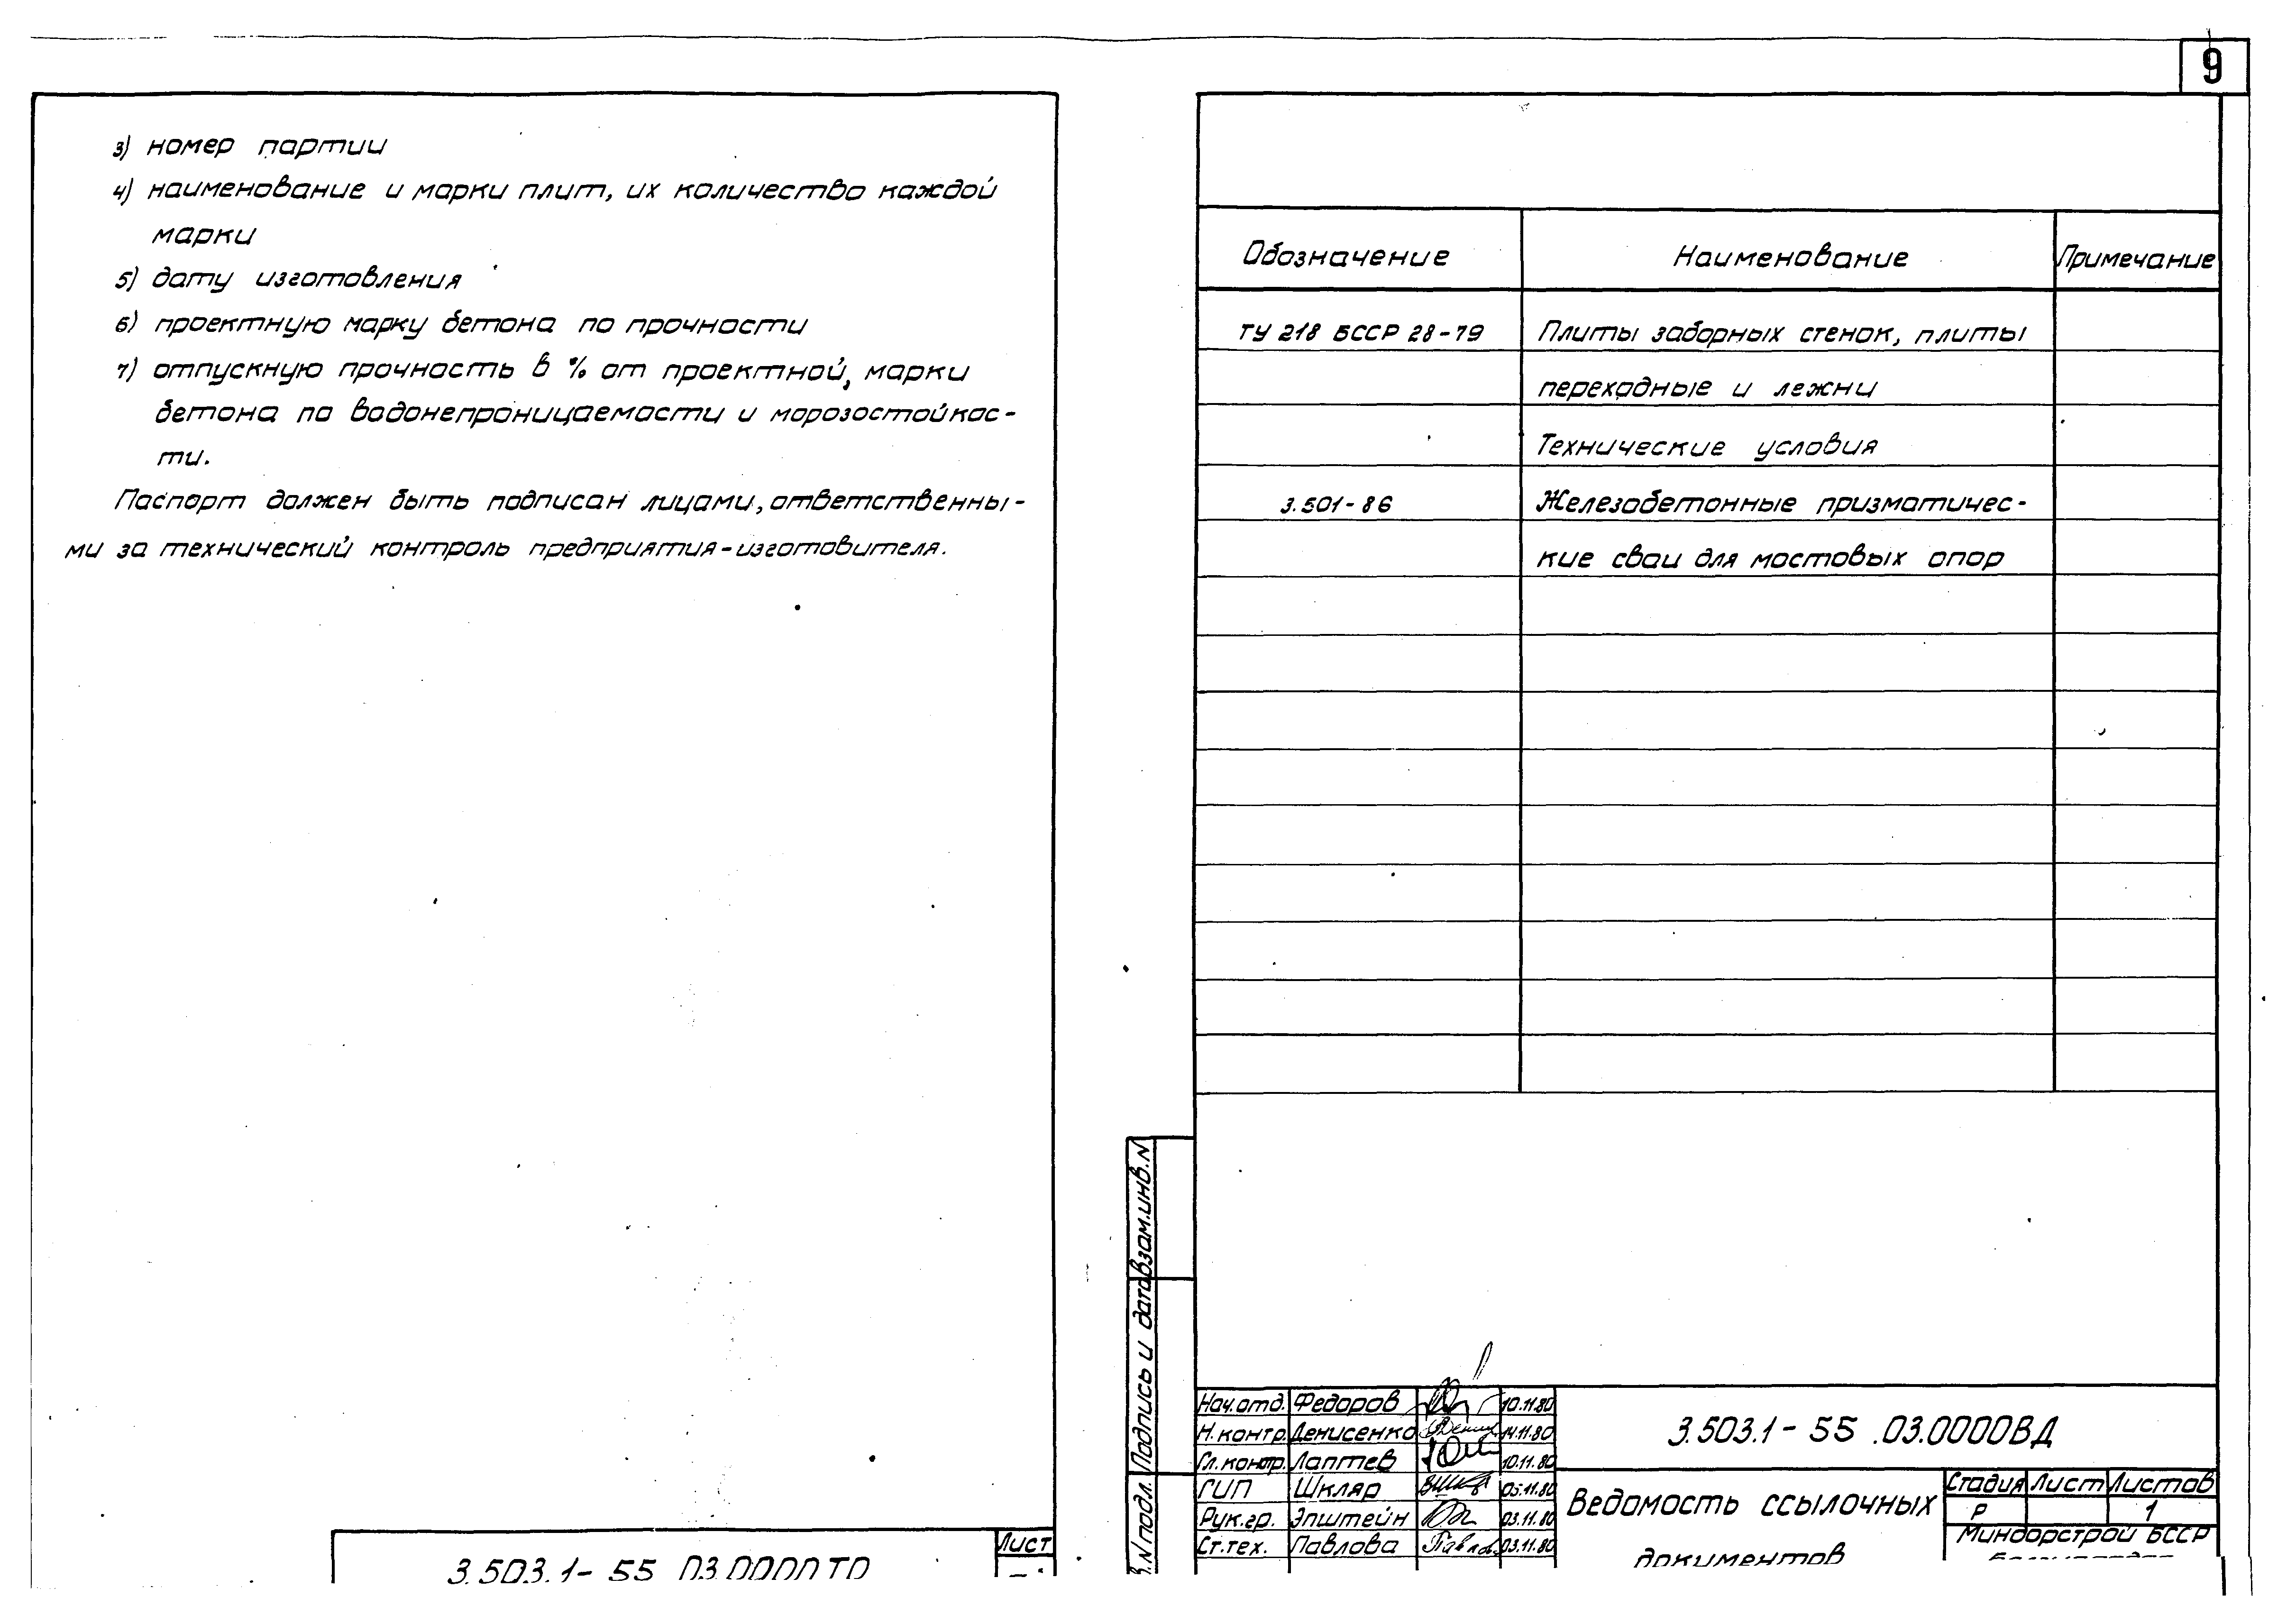 9
3) номер партии
4) наименование и марки плит, их количество каждой
марки
5) дату изготовления
6) проектную марку бетона по прочности
7) отпускную прочность в % от проектной, марки
бетона по водонепроницаемости и морозостойкос-
ти.
Паспорт должен быть подписан лицами, ответственны-
ми за технический контроль предприятия-изготовителя.
3.503.1-55 03.0000ТО
Лист
Обозначение Наименование Примечание
ТУ 218 БССР 28-79 Плиты заборных стенок, плиты
переходные и лежни
Технические условия
3.501-86 Железобетонные призматичес-
кие сваи для мостовых опор
Взам.инв.N
Подпись и дата
N подл.
Нач.отд. Федоров 10.11.80
Н.контр. Денисенко 14.11.80
Гл.контр. Лаптев 10.11.80
ГИП Шкляр 05.11.80
Рук.гр. Эпштейн 03.11.80
Ст.тех. Павлова 03.11.80
3.503.1-55 .03.0000ВД
Ведомость ссылочных
документов
Стадия Лист Листов
Р 1
Миндорстрой БССР